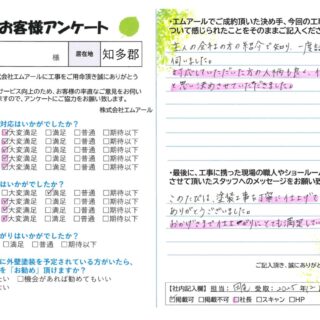 お客様アンケート
様
居在地
知多郡
株式会社エムアールに工事をご用命頂き誠にありがとう
サービス向上のため、お客様の率直なご意見をお伺
ますので、アンケートにご協力をお願い致します。
株式会社エムアール
対応はいかがでしたか?
大変満足 □満足 □普通 □期待以下
大変満足 □満足 □普通 □期待以下
大変満足 □満足 □普通 □期待以下
はいかがでしたか?
大変満足 □満足 □普通 □期待以下
がりはいかがでしたか?
大変満足 □満足 □普通 □期待以下
に外壁塗装を予定されている方がいたら、
を「お勧め」頂けますか?
たい □機会があれば勧めてもいい
ない
・エムアールでご成約頂いた決め手、今回の工
ついて感じられたことをそのままご記入くださ
主人の会社の方の紹介で知り、一度
伺いました。
対応していただいた方の人柄も良く、
と思い決めさせていただきました。
・最後に、工事に携った現場の職人やショールー
させて頂いたスタッフへのメッセージをお願い致
このたびは、塗装工事を丁寧に仕上げて
ありがとうございました。
おかげさまで仕上がりにとても満足してい
ご記入頂き、誠にありがと
【社内記入欄】 担当: 受取: 2025
掲載可 □掲載不可 社長 □スキャン □HP